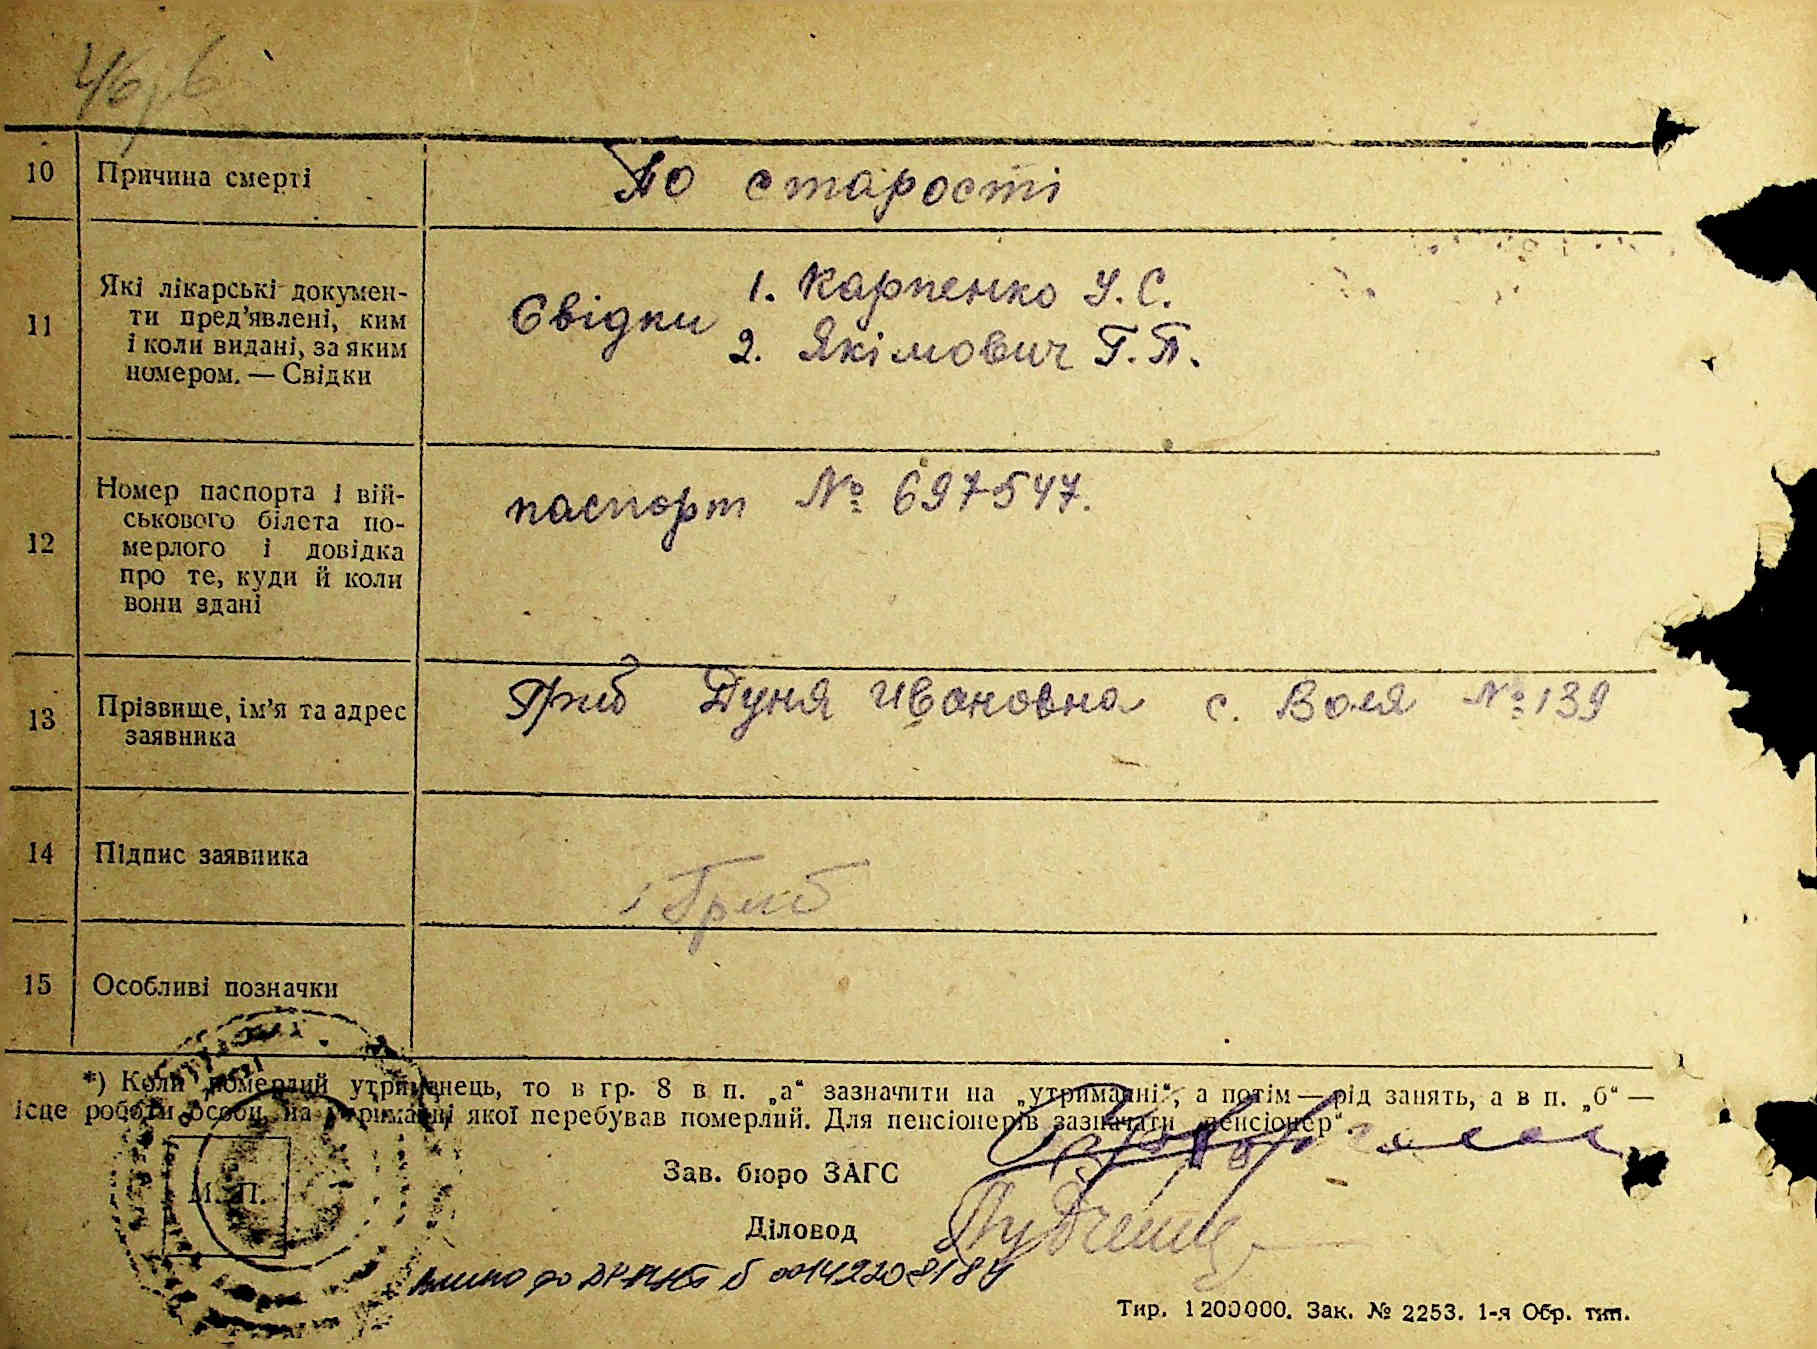 10 Причина смерті По старості
11 Які лікарські докумен-
ти пред'явлені, ким
і коли видані, за яким
номером. — Свідки
Свідки 1. Карпенко У. С.
2. Якімович Г. П.
12 Номер паспорта і вій-
ськового білета по-
мерлого і довідка
про те, куди й коли
вони здані
паспорт № 697547.
13 Прізвище, ім'я та адрес
заявника
Гриб Дуня Ивановна с. Воля № 139
14 Підпис заявника
Гриб
15 Особливі позначки
*) Коли померлий утриманець, то в гр. 8 в п. „а“ зазначити на „утриманні“, а потім — рід занять, а в п. „б“ —
ісце роботи особи, на утриманні якої перебував померлий. Для пенсіонерів зазначати „пенсіонер“.
Зав. бюро ЗАГС
М. П.
Діловод
до 00142208184
Тир. 1200000. Зак. № 2253. 1-я Обр. тип.